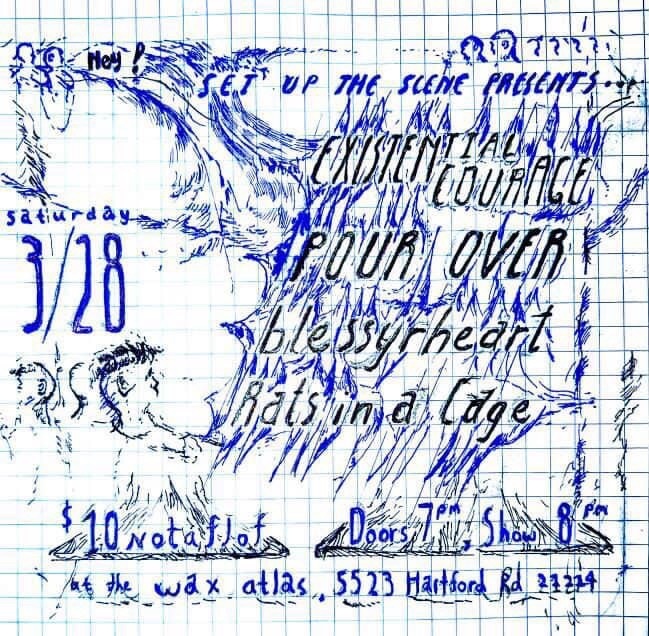 Hey!
SET UP THE SCENE PRESENTS...
EXISTENTIAL COURAGE
saturday
3/28
POUR OVER
blessyrheart
Rats in a Cage
$10 Notaflof
Doors 7pm, Show 8pm
at the wax atlas, 5523 Hartford Rd